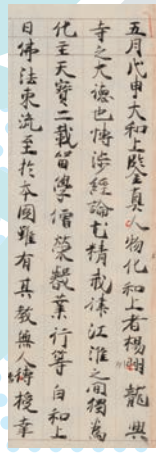 五月戊申大和上鑒真人物化和上者楊州龍興
寺之大德也博渉經論尤精戒律江淮之間獨為
化主天寳二載留學僧榮叡業行等白和上
日佛法東流至於本國雖有其教無人傳授幸